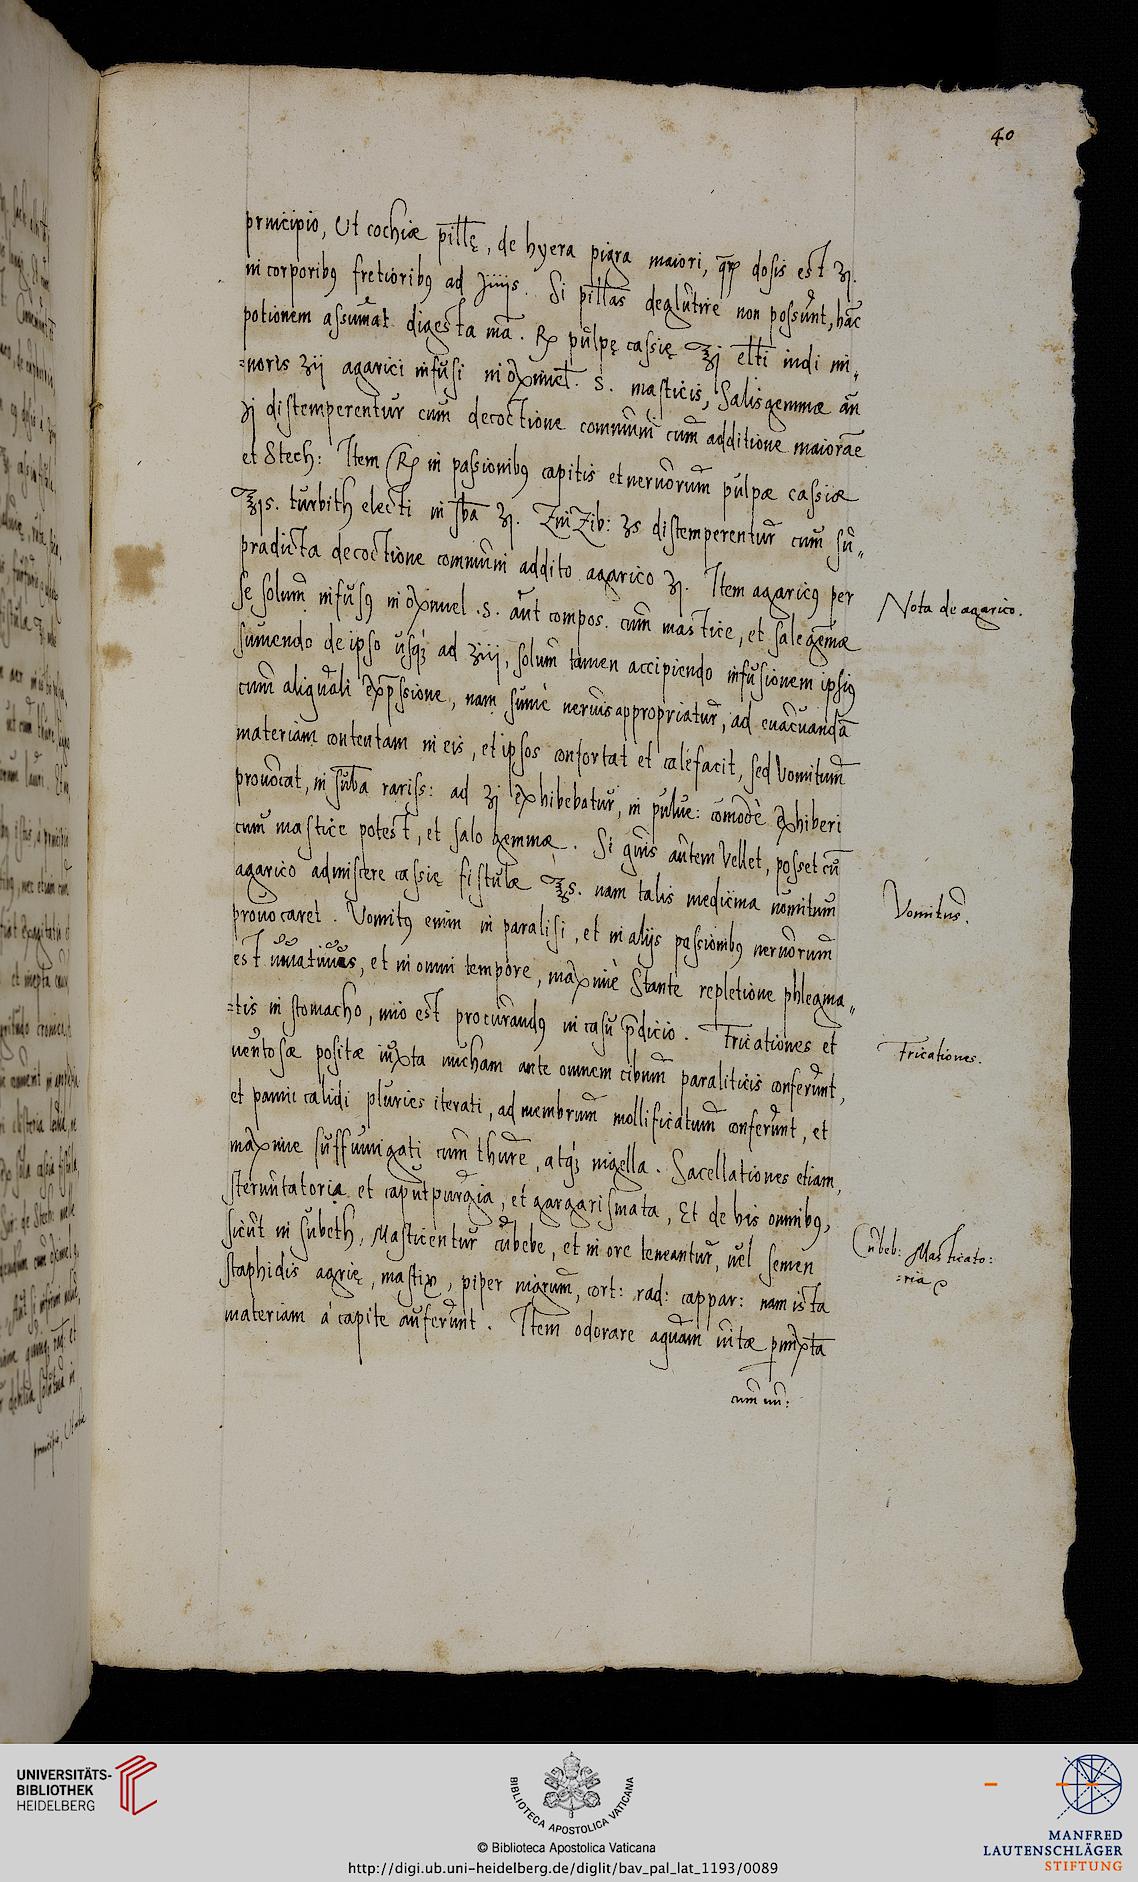 40
principio, Ut cochiæ pillę, de hyera pigra maiori, qrũ dosis est ʒj.
in corporibꝰ fretioribꝰ ad ʒiiijs. Si pillas deglutire non possunt, hãc
potionem assumãt digesta mã. ℞ pulpę cassię ℥j eltí indi mi„
=noris ʒij agarici infusi in oximel. s. masticis, Salisgemmæ añ
ʒj distemperentur cum decoctione communi cum additione maioraæ
et Stech: Item ℞ in passionibꝰ capitis et neruorum pulpæ cassiæ
℥js. turbith electi in sba ʒj. ZinZib: ʒs distemperentur cum su„
pradicta decoctione communi addito agarico ʒj. Item agaricꝰ per
se solum infusꝰ in oximel .s. aut compos. cum mastice, et sale gẽmæ
sumendo de ipso usqꝫ ad ʒiij, solum tamen accipiendo infusionem ipsiꝰ
cum aliquali exp̃ssione, nam sumè neruis appropriatur, ad euacuandã
materiam contentam in eis, et ipsos confortat et calefacit, sed Vomitum
prouocat, in suba rariss: ad ʒj exhibebatur, in pulue: cõmodè exhiberi
cum mastice potest, et salo gemmæ. Si quis autem Vellet, posset cũ
agarico admiscere cassię fistulæ ℥s. nam talis medicina uomitum
prouocaret. Vomitꝰ enim in paralisi, et in alijs passionibꝰ neruorum
est iuuatiuus, et in omni tempore, maximè Stante repletione phlegma„
=tis in stomacho, imo est procurandꝰ in casu p̃dicto. Fricationes et
uentosæ positæ iuxta nucham ante omnem cibum paraliticis conferunt,
et panni calidi pluries iterati, ad membrum mollificatum conferunt, et
maxime suffumigati cum thure, atqꝫ nigella. Sacellationes etiam,
sternutatoria et caputpurgia, et gargarismata, Et de his omnibꝰ,
sicut in subeth, Masticentur cubebe, et in ore teneantur, uel semen
staphidis agrię, mastix, piper nigrum, cort: rad: cappar: nam ista
materiam à capite auferunt. Item odorare aquam uitæ p̱mixta
cum un:
Nota de agarico.
Vomitus.
Fricationes.
Cubeb: Masticato:
=ria
UNIVERSITÄTS-
BIBLIOTHEK
HEIDELBERG
BIBLIOTECA APOSTOLICA VATICANA
© Biblioteca Apostolica Vaticana
http://digi.ub.uni-heidelberg.de/diglit/bav_pal_lat_1193/0089
MANFRED
LAUTENSCHLÄGER
STIFTUNG